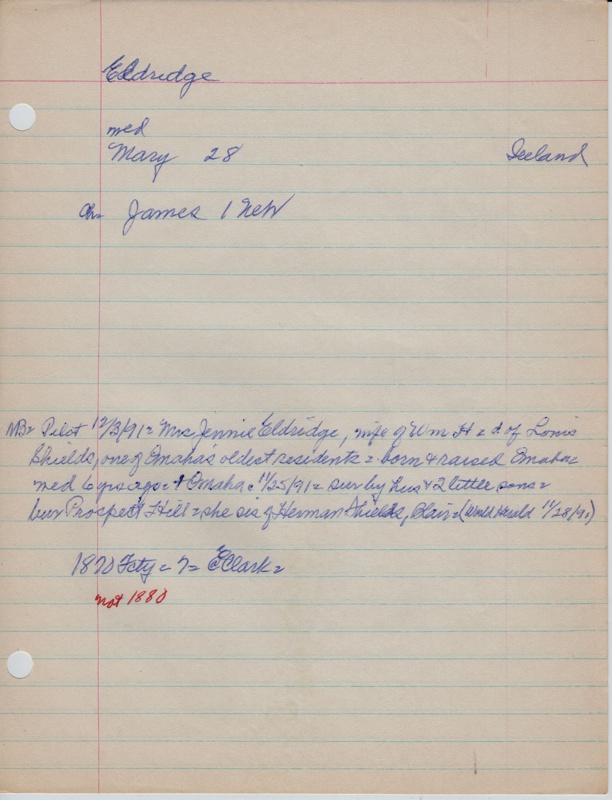 Eldridge
med
Mary 28 Ireland
ch= James 1 Neb
NB= Pilot 12/3/91= Mrs Jennie Eldridge, wife of Wm H = d of Louis
Shields, one of Omahas oldest residents = born & raised Omaha=
med 6 yrs ago = + Omaha = 11/25/91 = sur by hus & 2 little sons =
bur Prospect Hill = she sis of Herman Shields, Blair = (World Herald 11/28/91)
1870 Fcty = 7 = E Clark =
not 1880